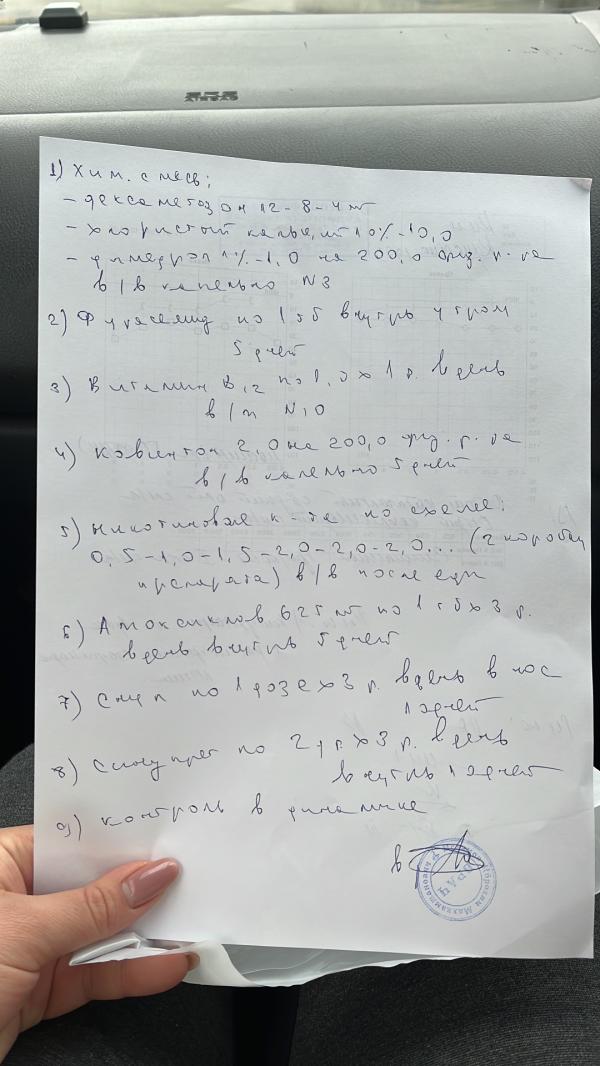 1) Хим. смесь:
- дексаметазон 12-8-4 мг
- хлористый кальций 10%-10,0
- димедрол 1%-1,0 на 200,0 физ. р-ра
в/в капельно N3
2) Фуросемид по 1 тб внутрь утром
5 дней
3) Витамин В12 по 1,0 х 1 р. в день
в/м N10
4) Кавинтон 2,0 на 200,0 физ. р-ра
в/в капельно 5 дней
5) Никотиновая к-та по схеме:
0,5-1,0-1,5-2,0-2,0-2,0... (2 коробки
препарата) в/в после еды
6) Амоксиклав 625 мг по 1 тб х 3 р.
в день внутрь 5 дней
7) Снуп по 1 дозе х 3 р. в день в нос
дней
8) Синупрет по 2 др. х 3 р. в день
внутрь дней
9) контроль в динамике
В
AIRBAG